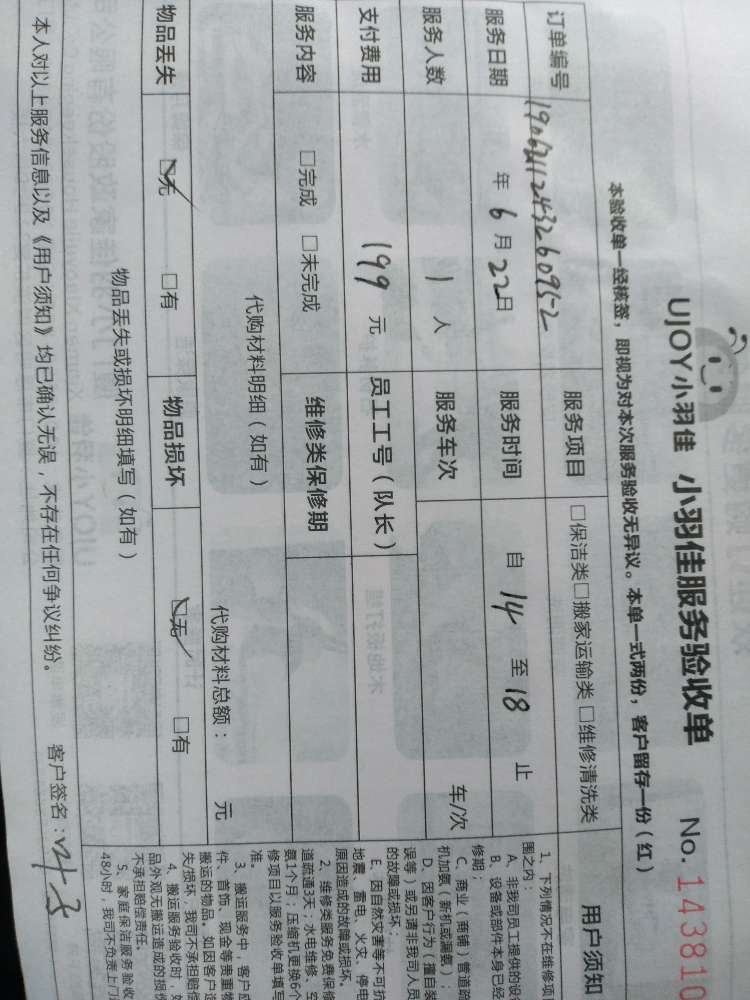 UJOY小羽佳 小羽佳服务验收单 No. 143810
本验收单一经核签，即视为对本次服务验收无异议。本单一式两份，客户留存一份（红）
订单编号 190621124326 0952 服务项目 □保洁类□搬家运输类 □维修清洗类
服务日期 年 6 月 22 日 服务时间 自 14 至 18 止
服务人数 1 人 服务车次 车/次
支付费用 199 元 员工工号（队长）
服务内容 □完成 □未完成 维修类保修期
代购材料明细（如有） 代购材料总额： 元
物品丢失 ☑无 □有 物品损坏 ☑无 □有
物品丢失或损坏明细填写（如有）
本人对以上服务信息以及《用户须知》均已确认无误，不存在任何争议纠纷。 客户签名：
用户须知
1、下列情况不在维修项
围之内：
A、非我司员工提供的设
B、设备或部件本身已经
修期；
C、商业（商铺）管道疏
机加氨（新机或漏氨）；
D、因客户行为（擅自装
误等）或另请非我司人员
的故障或损坏；
E、因自然灾害等不可抗
地震、雷电、火灾、停电
原因造成的故障或损坏。
2、维修类服务免费保修
道疏通3天；水电维修、空
氨1个月；压缩机更换6个
修项目以服务验收单填写
准。
3、搬运服务中，客户应
件、首饰、现金等贵重物
搬运的物品。如因客户造
失/损坏，我司不承担赔偿
4、搬运服务验收时，如
品外观无搬运造成的损
不承担赔偿责任。
5、家庭保洁服务验收
48小时，我司不负责上门